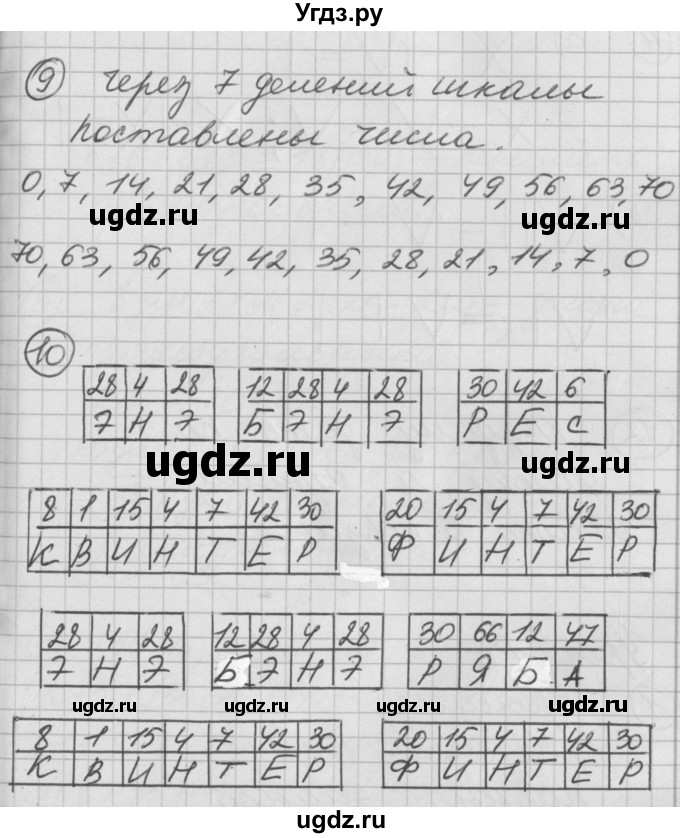 Угдз.ру
9 Через 7 делений шкалы
поставлены числа.
0, 7, 14, 21, 28, 35, 42, 49, 56, 63, 70
ugdz.ru ugdz.ru
70, 63, 56, 49, 42, 35, 28, 21, 14, 7, 0
10
28 4 28 12 28 4 28 30 42 6
Э Н Э Б Э Н Э Р Е С
ugdz.ru ugdz.ru
8 1 15 4 7 42 30 20 15 4 7 42 30
К В И Н Т Е Р Ф И Н Т Е Р
28 4 28 12 28 4 28 30 66 12 47
Э Н Э Б Э Н Э Р Я Б А
ugdz.ru ugdz.ru ugdz.ru
8 1 15 4 7 42 30 20 15 4 7 42 30
К В И Н Т Е Р Ф И Н Т Е Р
ugdz.ru